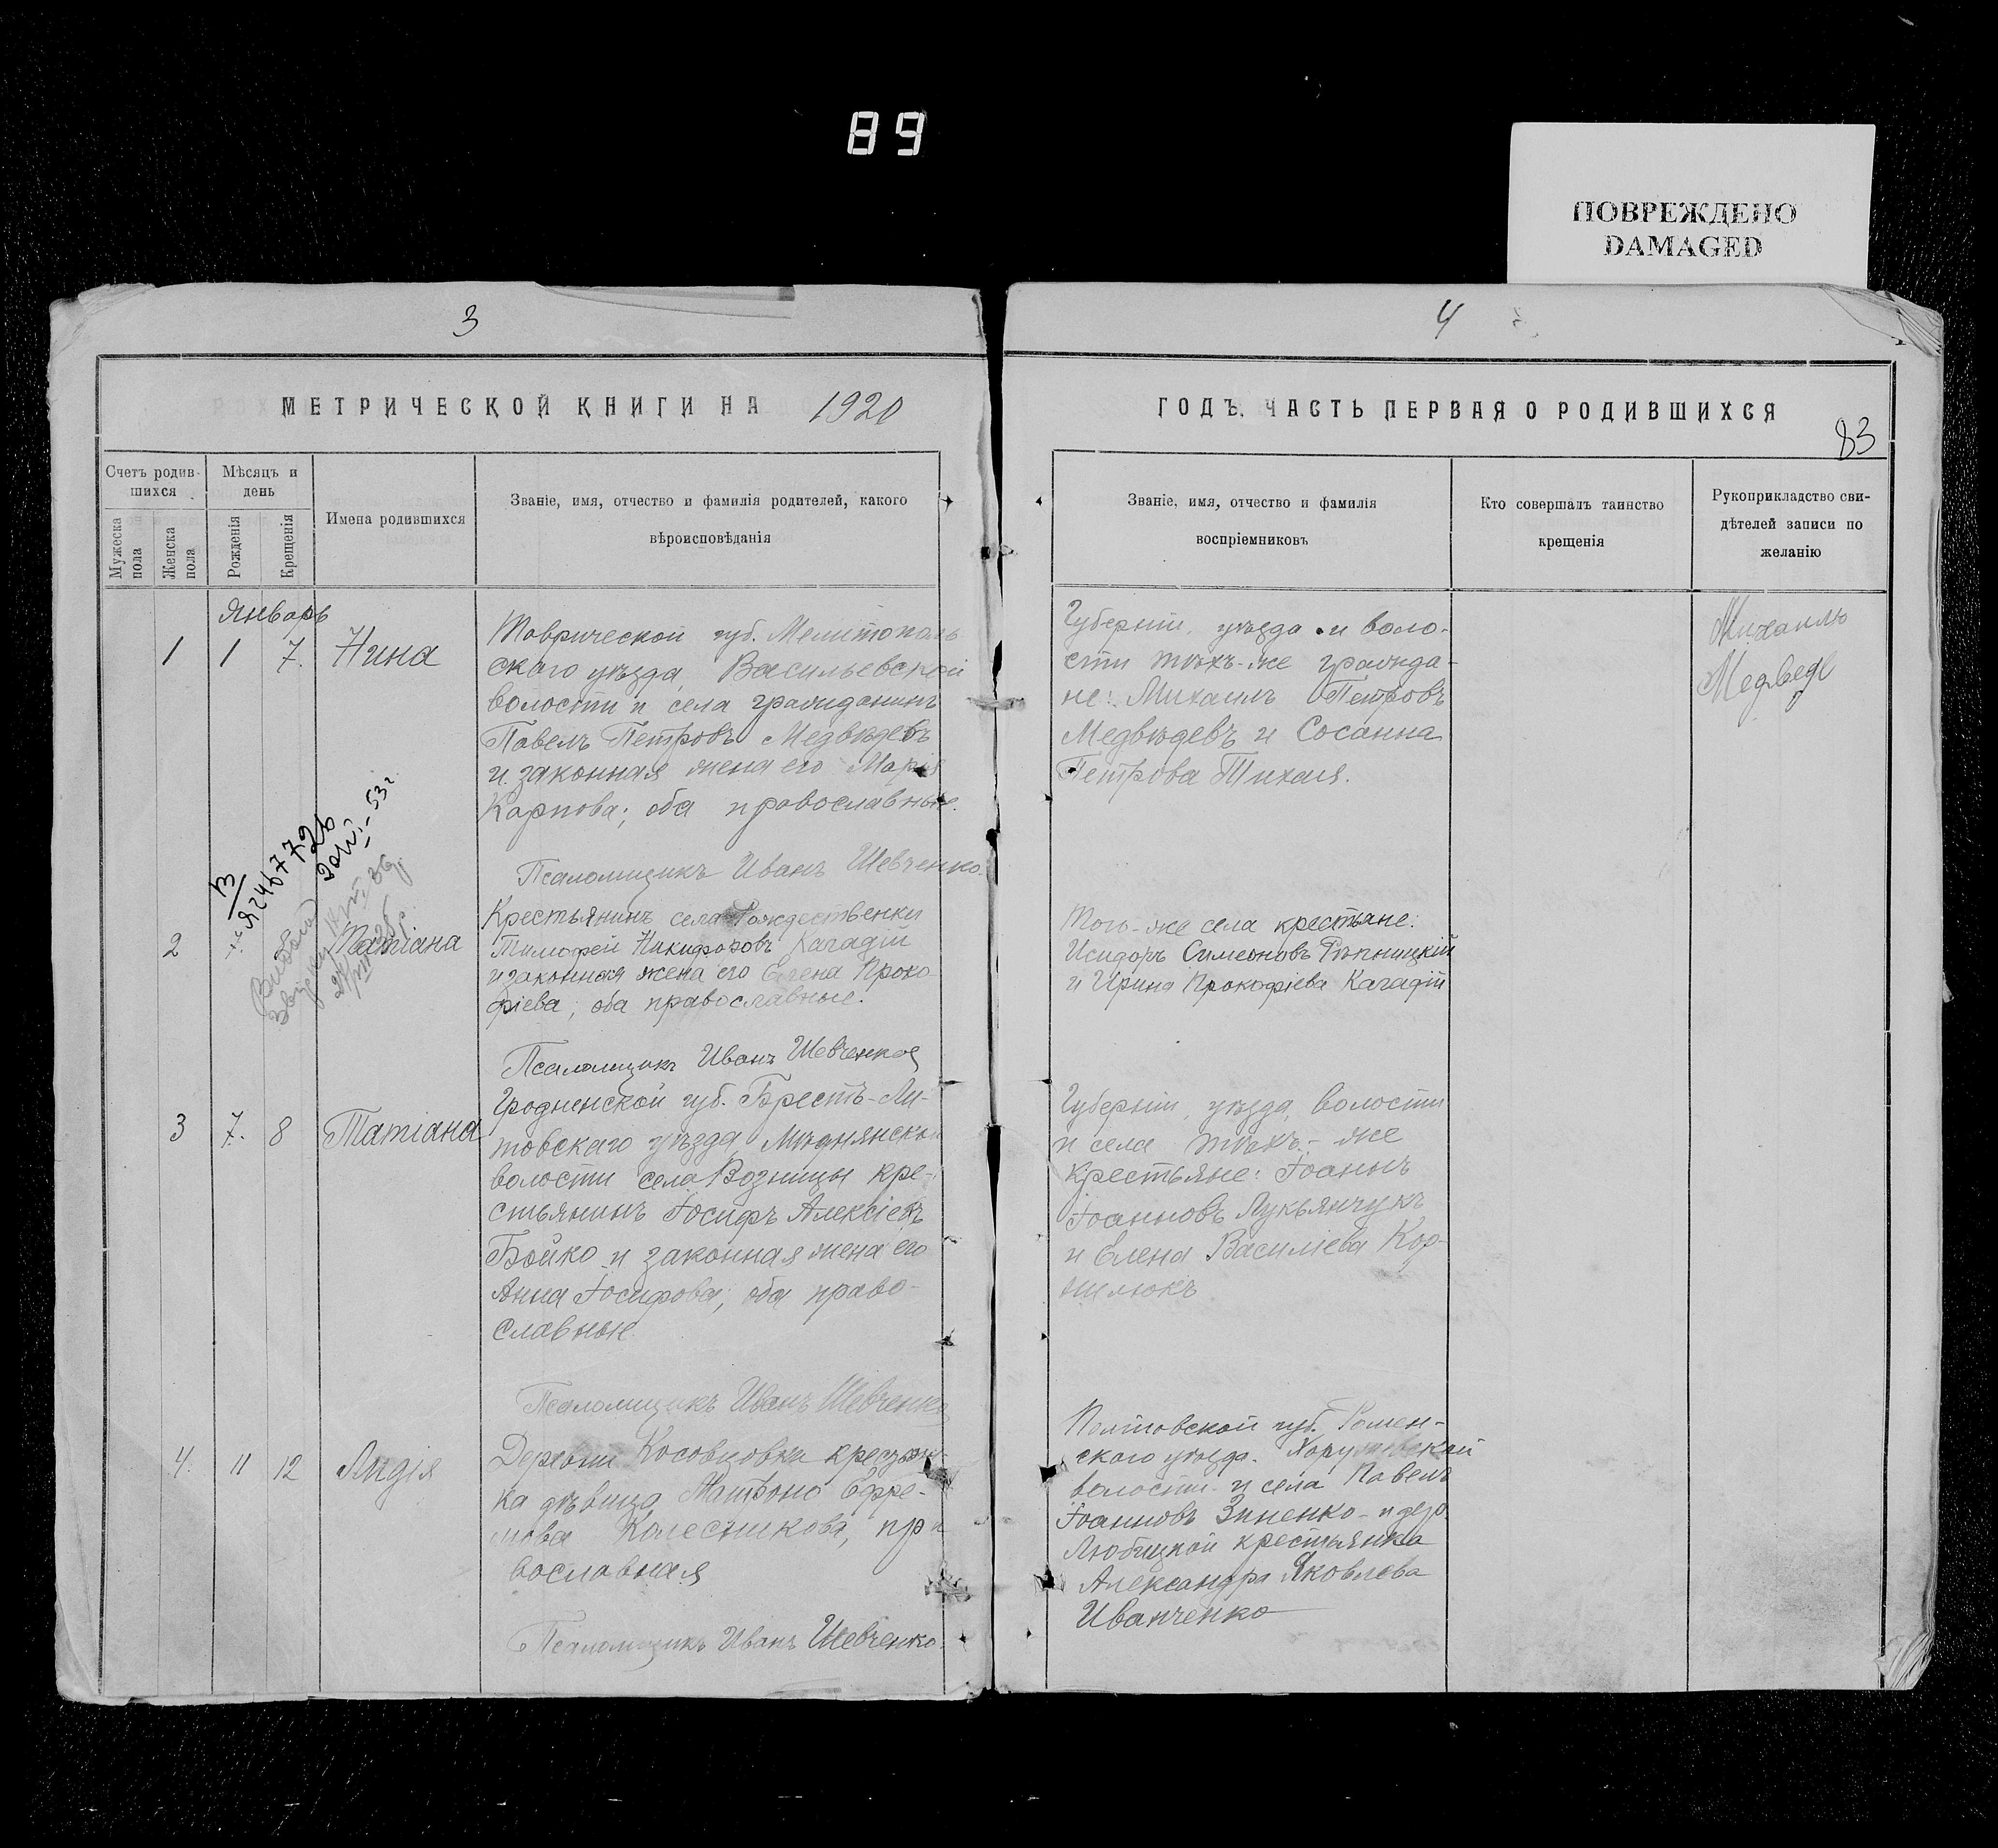 89
ПОВРЕЖДЕНО
DAMAGED
3
МЕТРИЧЕСКОЙ КНИГИ НА 1920
Счетъ родив-
шихся
Мѣсяцъ и
день
Мужеска
пола
Женска
пола
Рожденія
Крещенія
Имена родившихся
Званіе, имя, отчество и фамилія родителей, какого
вѣроисповѣданія
Январь
1 1 7. Нина
Таврической губ. Мелитополь
скаго уѣзда Васильевской
волости и села гражданинъ
Павелъ Петровъ Медвѣдевъ
и законная жена его Марія
Карпова; оба православные.
Псаломщикъ Иванъ Шевченко.
2 Татіана
Крестьянинъ села Рождественки
Тимофей Никифоровъ Кагадій
и законная жена его Елена Проко
фіева; оба православные.
Псаломщикъ Иванъ Шевченко
3 7. 8 Татіана
Гродненской губ. Брестъ-Ли-
товскаго уѣзда
волости села Возницы кре-
стьянинъ Іосифъ Алексіевъ
Бойко и законная жена его
Анна Іосифова; оба право-
славные
Псаломщикъ Иванъ Шевченко
4. 11 12 Лидія
Деревни Косовцовка крестьян
ка дѣвица Матрона Ефре-
мова Колесникова, пра
вославная
Псаломщикъ Иванъ Шевченко.
4
ГОДЪ. ЧАСТЬ ПЕРВАЯ О РОДИВШИХСЯ
83
Званіе, имя, отчество и фамилія
воспріемниковъ
Кто совершалъ таинство
крещенія
Рукоприкладство сви-
дѣтелей записи по
желанію
Губерніи, уѣзда и воло-
сти тѣхъ-же гражда-
не: Михаилъ Петровъ
Медвѣдевъ и Сосанна
Петрова Тихая.
Михаилъ
Медведь
Того-же села крестьяне:
Исидоръ Симеоновъ Рѣпницкій
и Ирина Прокофіева Кагадій
Губерніи, уѣзда, волости
и села тѣхъ-же
крестьяне: Іоаннъ
Іоанновъ Лукьянчукъ
и Елена Василіева Кор-
нилюкъ
Полтовской губ. Ромен-
скаго уѣзда.
волости и села Павелъ
Іоанновъ Зиненко и дер.
Любицкой крестьянка
Александра Яковлева
Иванченко